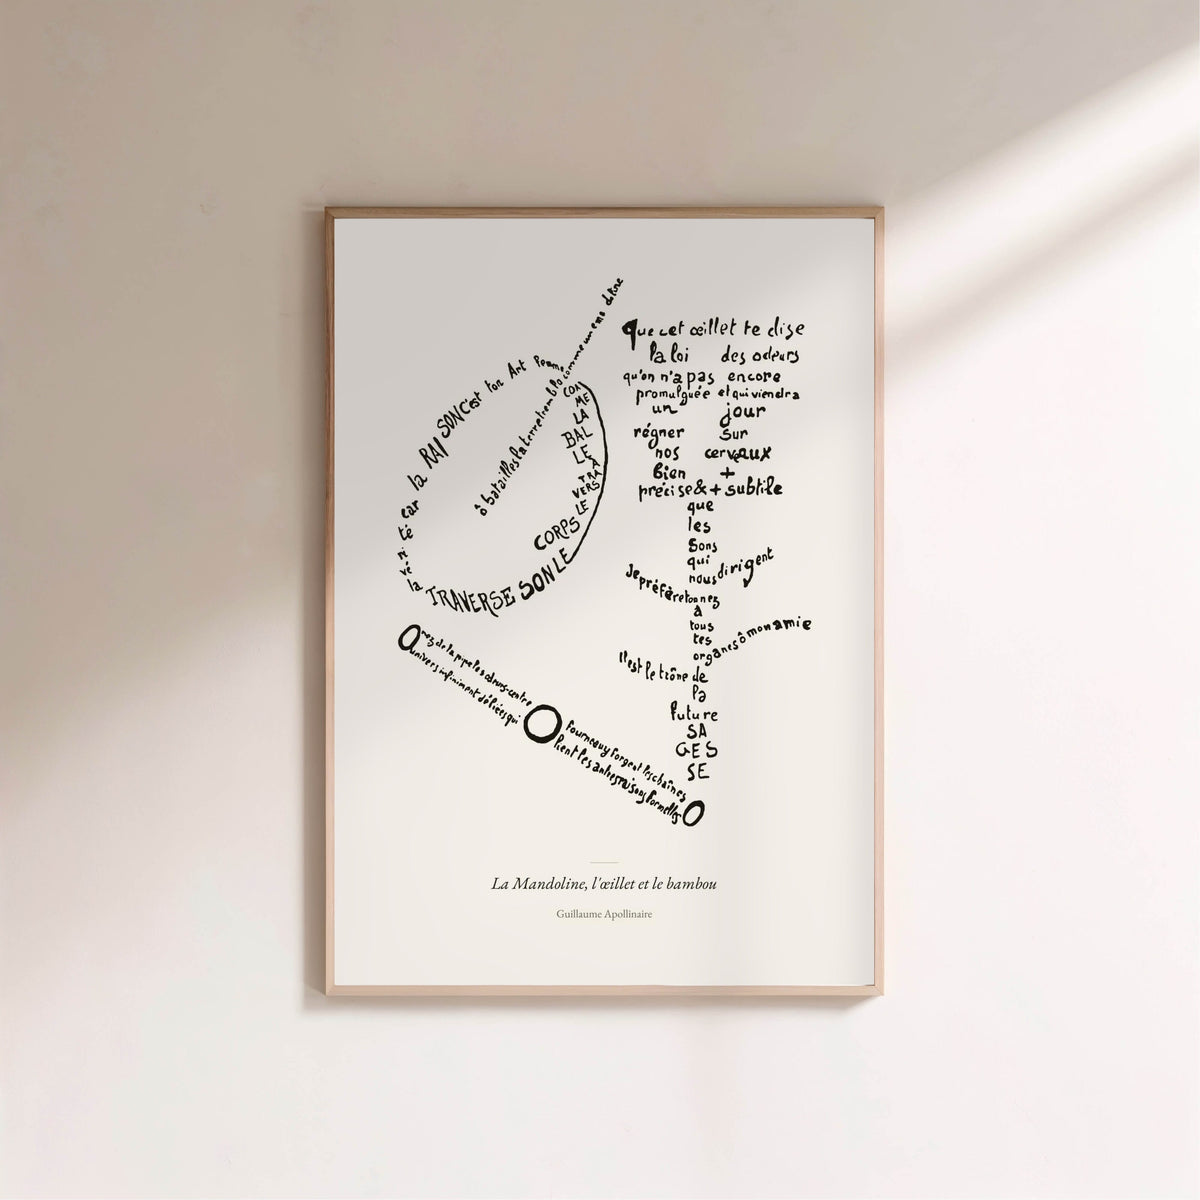 ô batailles la terre tremble comme une mandoline
COMME LA BALLE À TRAVERS LE CORPS
LE SON TRAVERSE
la vérité car la RAISON C'est ton Art Femme
que cet œillet te dise
la loi des odeurs
qu'on n'a pas encore
promulguée et qui viendra
un jour
régner sur
nos cerveaux
bien +
précise & + subtile
que
les
sons
qui
nous dirigent
Je préfère ton nez
à
tous
tes
organes ô mon amie
Il est le trône de
la
future
SA
GES
SE
O nez de la pipe les odeurs-centre
univers infiniment déliées qui
O fourneau y forgent les chaînes
lient les autres raisons formelles
O
La Mandoline, l'œillet et le bambou
Guillaume Apollinaire